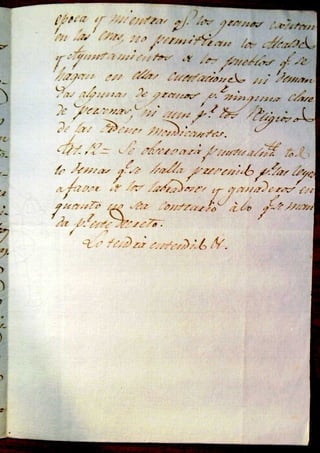 epoca y mientras qe. los granos existan
en las eras, no permitiran los Alcaldes
y Ayuntamientos de los pueblos qe. se
hagan en ellas cuestaciones ni deman
das algunas de granos pr. ninguna clase
de personas, ni aun pr. los Religiosos
de las ordenes mendicantes.
Art. 12 = Se observará puntualmte. to
to demas qe. se halla prevenido pr. las leyes
a favor de los labradores y ganaderos en
quanto no sea contrario á lo qe. se man
da pr. este decreto.
Lo tendrá entendido &.